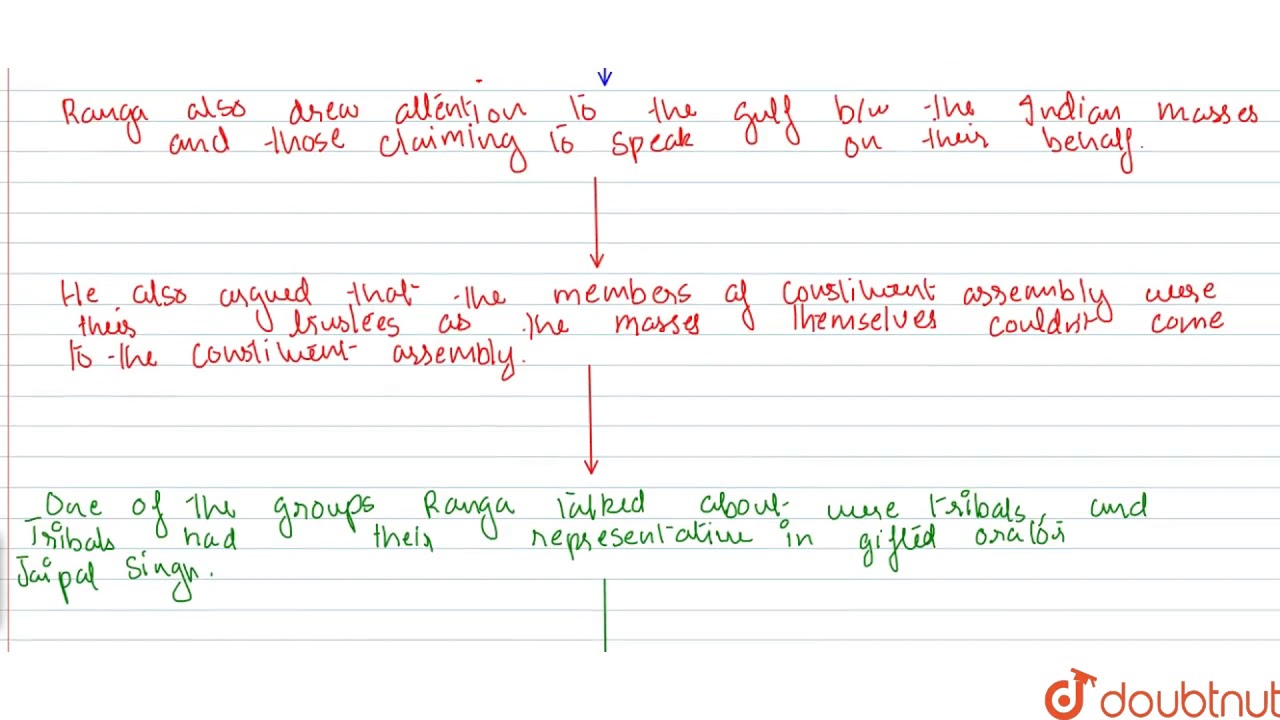 Ranga also drew attention to the gulf b/w the Indian masses
and those claiming to speak on their behalf.
He also argued that the members of constituent assembly were
their trustees as the masses themselves couldn't come
to the constituent assembly.
One of the groups Ranga talked about were tribals, and
Tribals had their representative in gifted orator
Jaipal Singh.
doubtnut